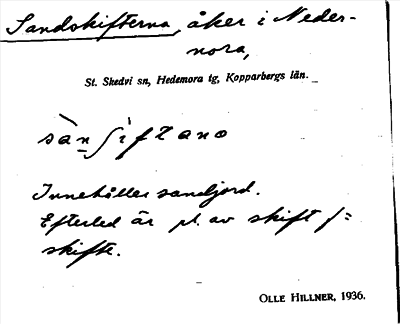 Sandskifterna, åker i Neder-
nora,
St. Skedvi sn, Hedemora tg, Kopparbergs län.
Innehåller sandjord.
Efterled är pl. av skift f =
skifte.
OLLE HILLNER, 1936.